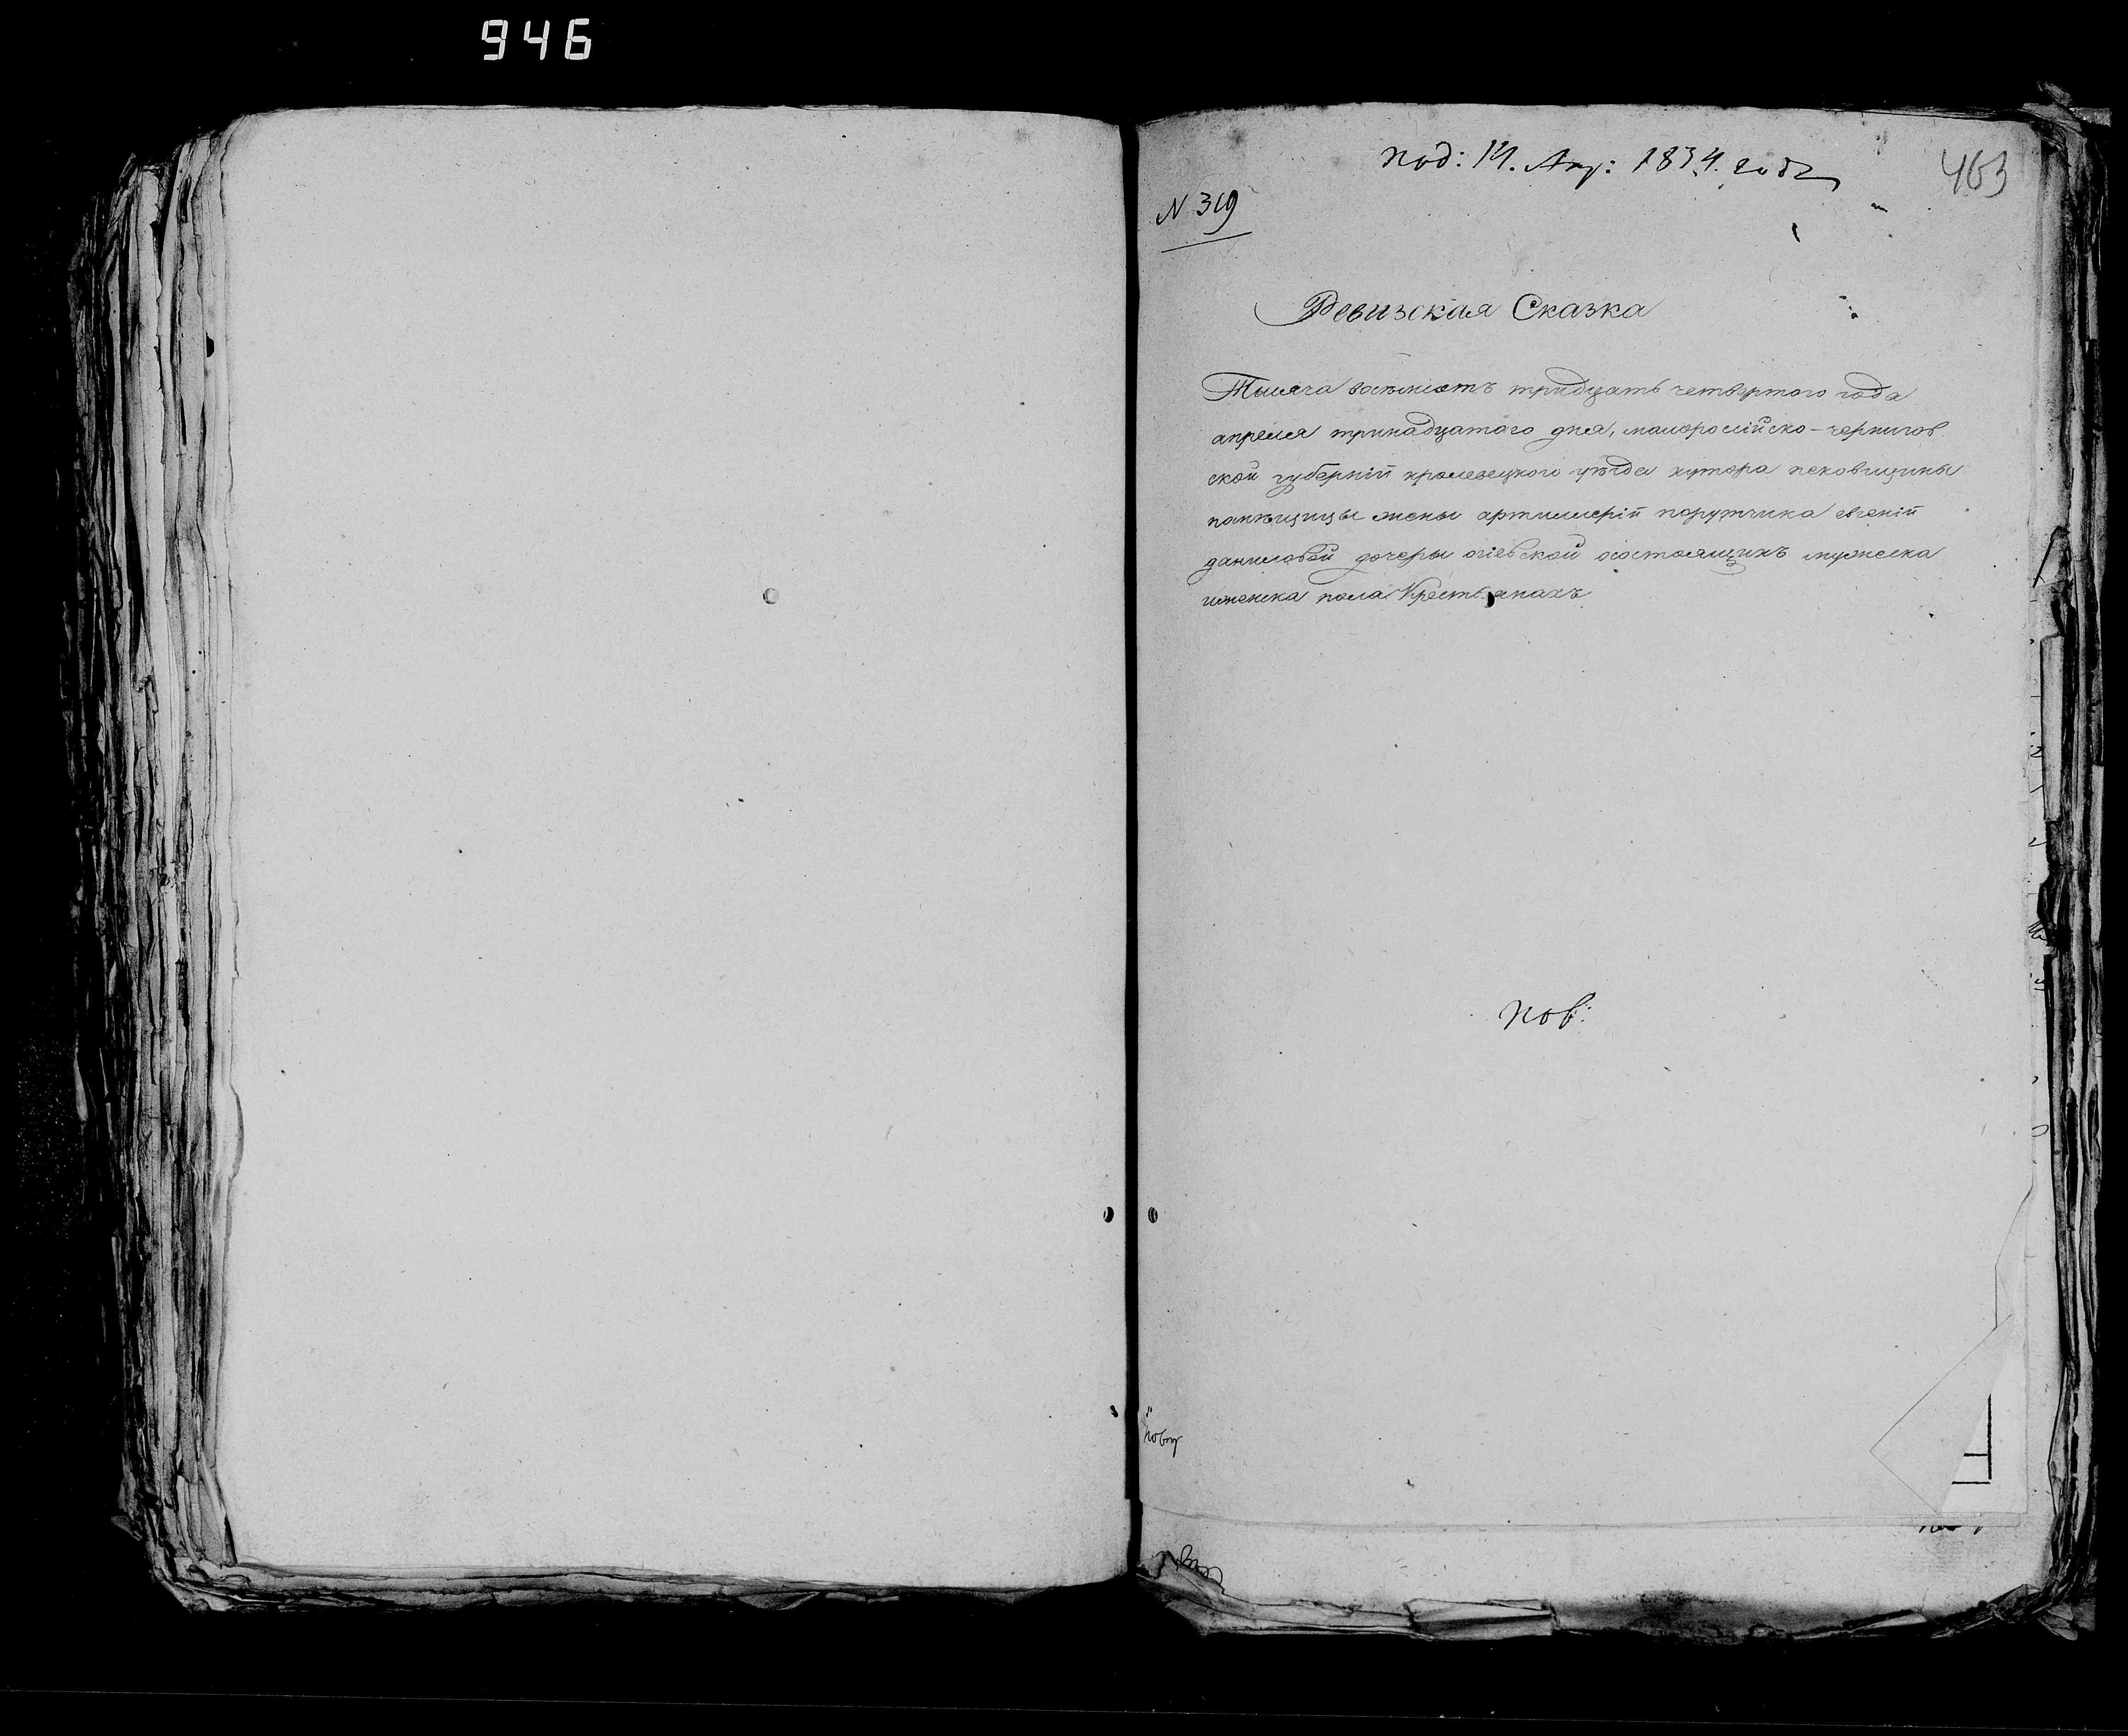 946
под: 14. Апр: 1834. года
463
N 319
Ревизская Сказка
Тысяча восемсотъ тридцать четвертого года
апреля тринадцатаго дня, малоросійско-чернигов
ской губерній кролевецкого уѣзда хутора пековщины
помѣщицы жены артиллерій поручика евгеній
даниловой дочеры огіевской осостоящихъ мужеска
иженска пола Крестьянахъ
пов: